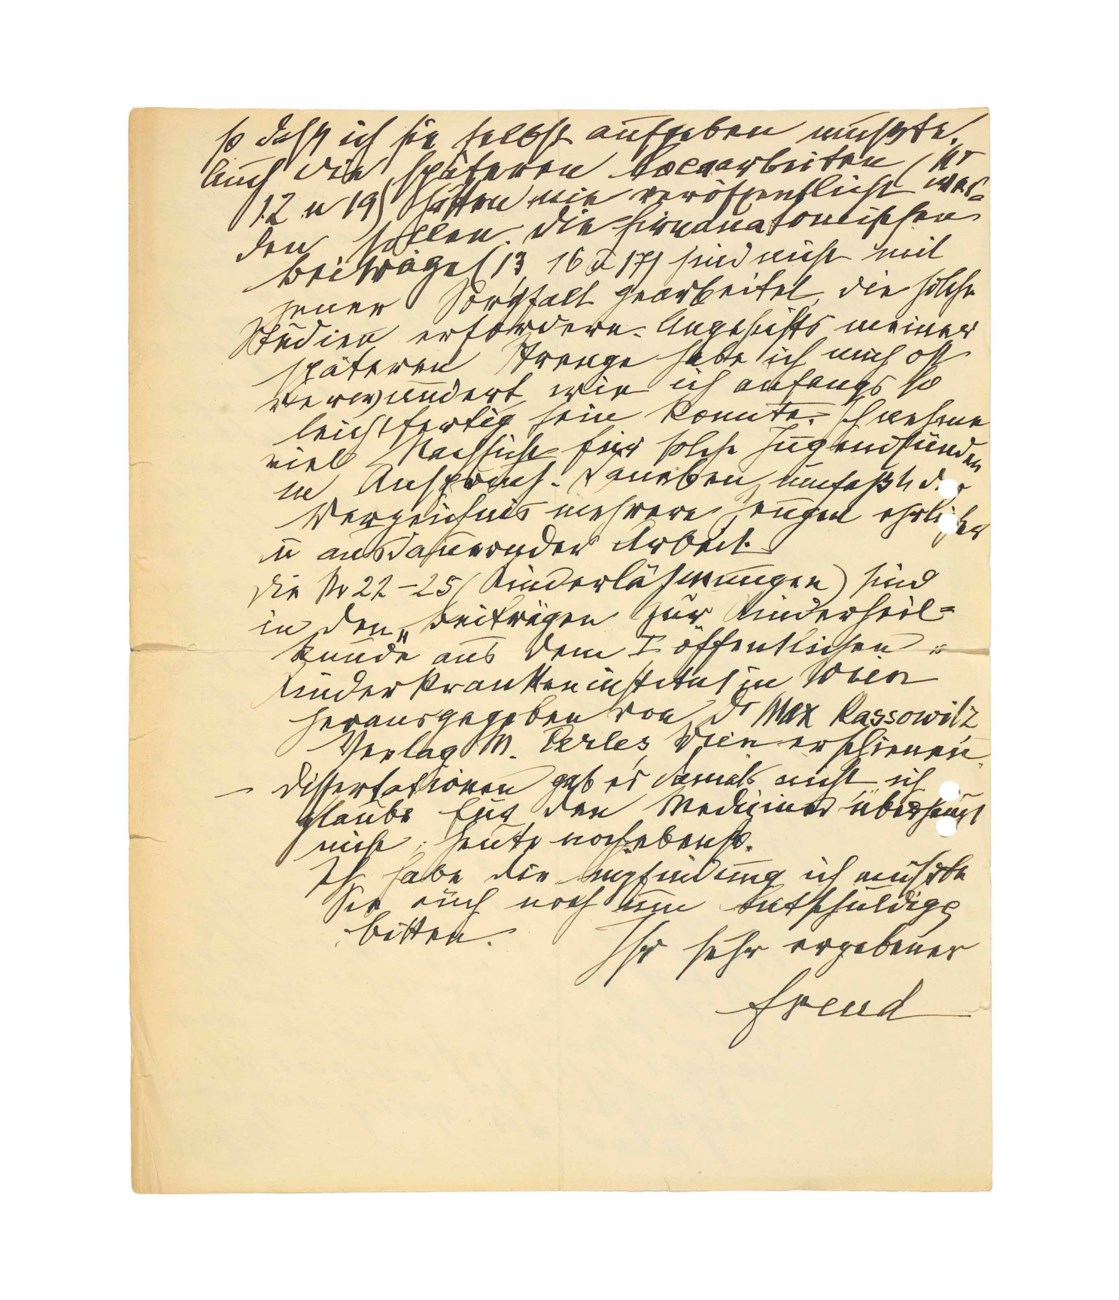 so daß ich sie selbst aufgeben mußte.
Auch die späteren Cocaarbeiten (Nr
12 u 19) hätten nie veröffentlicht wer-
den sollen. Die hirnanatomischen
Beiträge (13, 16 u 17) sind nicht mit
jener Sorgfalt gearbeitet, die solche
Studien erfordern. Angesichts meiner
späteren Strenge habe ich mich oft
verwundert, wie ich anfangs so
leichtfertig sein konnte. Ich nehme
viel Nachsicht für solche Jugendsünden
in Anspruch. Daneben umfaßt das
Verzeichnis mehrere Zeugen ehrlicher
u ausdauernder Arbeit.
Die Nr 22–25 (Kinderlähmungen) sind
in den „Beiträgen zur Kinderheil-
kunde aus dem I öffentlichen
Kinderkrankeninstitut in Wien
herausgegeben von Dr Max Kassowitz
Verlag M. Perles, Wien erschienen.
— Dissertationen gab es damals nicht, ich
glaube für den Mediziner überhaupt
nicht; heute noch ebenso.
Ich habe die Empfindung, ich müßte
Sie auch noch um Entschuldigg
bitten.
Ihr sehr ergebener
Freud